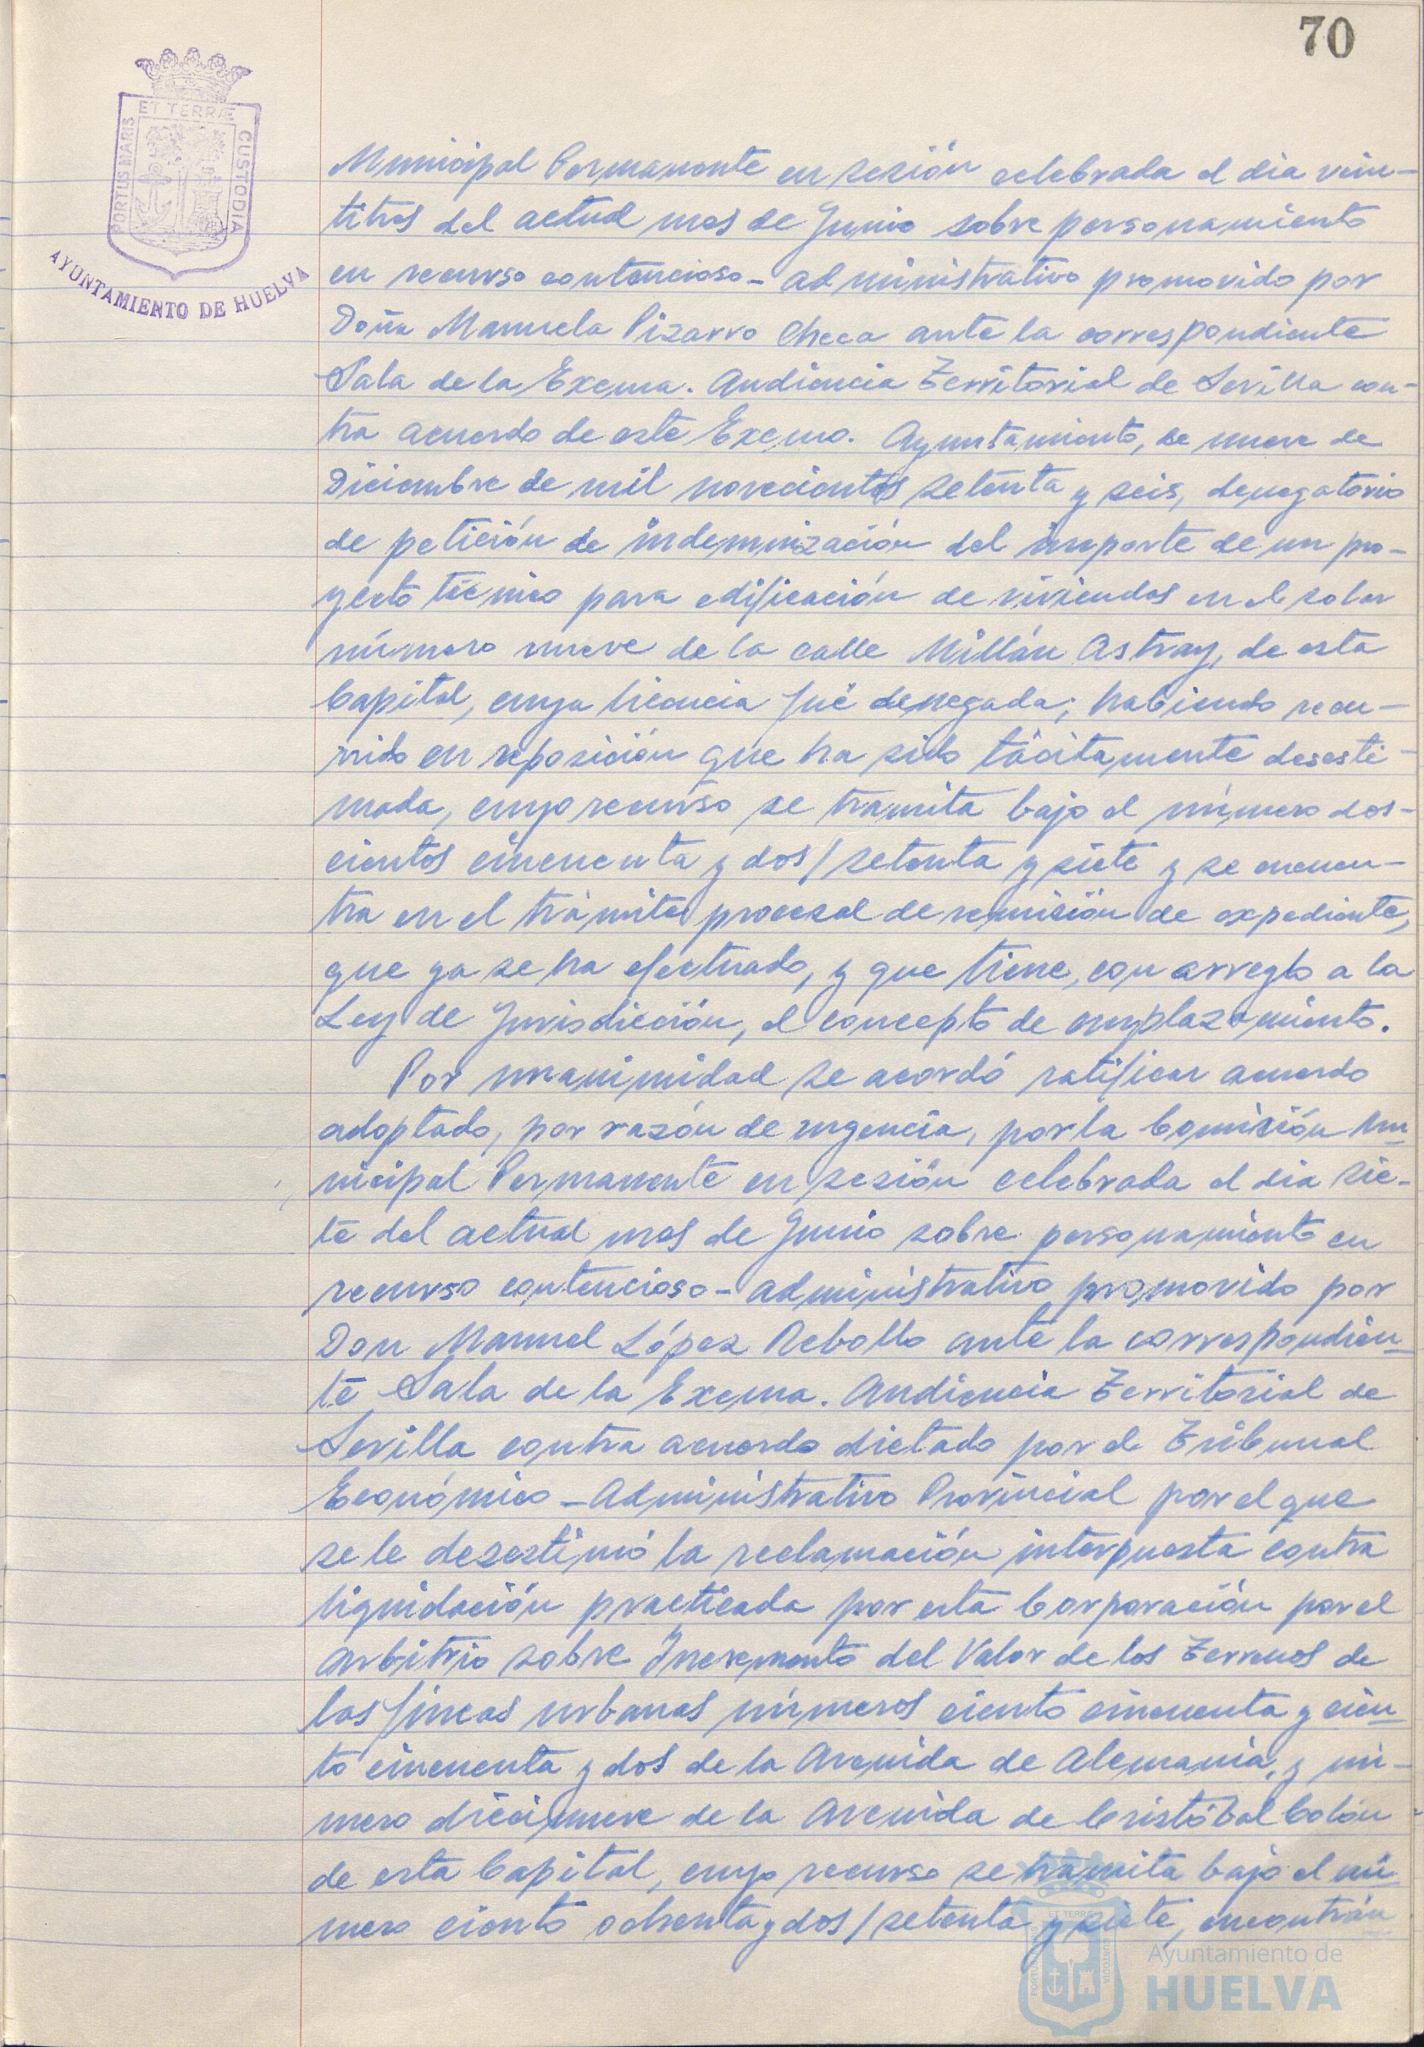 70
ET TERRÆ
PORTUS MARIS
CUSTODIA
AYUNTAMIENTO DE HUELVA
Municipal Permanente en sesión celebrada el dia vein-
titres del actual mes de Junio sobre personamiento
en recurso contencioso-administrativo promovido por
Doña Manuela Pizarro Checa ante la correspondiente
Sala de la Excma. Audiencia Territorial de Sevilla con-
tra acuerdo de este Excmo. Ayuntamiento, de nueve de
Diciembre de mil novecientos setenta y seis, denegatorio
de petición de indemnización del importe de un pro-
yecto técnico para edificación de viviendas en el solar
número nueve de la calle Millán Astray, de esta
Capital, cuya licencia fué denegada; habiendo recu-
rrido en reposición que ha sido tácitamente desesti-
mada, cuyo recurso se tramita bajo el número dos-
cientos cincuenta y dos/setenta y siete y se encuen-
tra en el trámite procesal de remisión de expediente,
que ya se ha efectuado, y que tiene, con arreglo a la
Ley de Jurisdicción, el concepto de emplazamiento.
Por unanimidad se acordó ratificar acuerdo
adoptado, por razón de urgencia, por la Comisión Mu-
nicipal Permanente en sesión celebrada el dia sie-
te del actual mes de Junio sobre personamiento en
recurso contencioso-administrativo promovido por
Don Manuel López Rebollo ante la correspondien-
te Sala de la Excma. Audiencia Territorial de
Sevilla contra acuerdo dictado por el Tribunal
Económico-Administrativo Provincial por el que
se le desestimó la reclamación interpuesta contra
liquidación practicada por esta Corporación por el
arbitrio sobre Incremento del Valor de los Terrenos de
las fincas urbanas números ciento cincuenta y cien-
to cincuenta y dos de la Avenida de Alemania, y nú-
mero diecinueve de la Avenida de Cristóbal Colón
de esta Capital, cuyo recurso se tramita bajo el nú-
mero ciento ochenta y dos/setenta y siete, encontrán
Ayuntamiento de
HUELVA